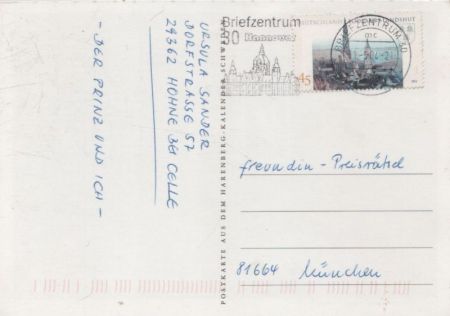 Briefzentrum
30 Hannover
DEUTSCHLAND
LANDSHUT
45
BRIEFZENTRUM 30
mc
URSULA SANDER
DORFSTRASSE 57
29362 HOHNE BEI CELLE
- DER PRINZ UND ICH -
POSTKARTE AUS DEM HARENBERG-KALENDER
freundin-Preisrätsel
81664 München